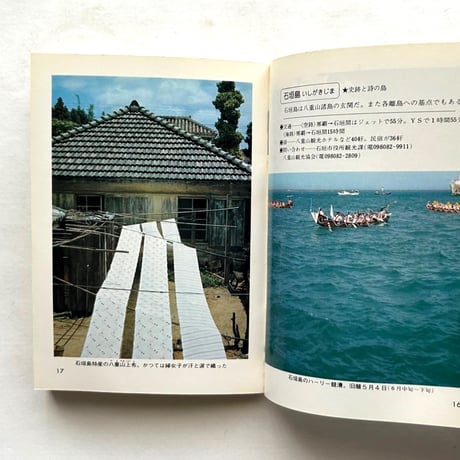 石垣島 いしがきじま ★史跡と詩の島
石垣島は八重山諸島の玄関だ。また各離島への基点でもある
●交通──〈空路〉那覇→石垣間はジェットで55分。YSで1時間55分
〈海路〉那覇→石垣間15時間
●宿──八重山観光ホテルなど40軒。民宿が36軒
●問い合わせ──石垣市役所観光課(電098082-9911)
八重山観光協会(電098082-2809)
石垣島のハーリー競漕。旧暦5月4日(6月中旬〜下旬)
16
石垣島特産の八重山上布。かつては婦女子が汗と涙で織った
17